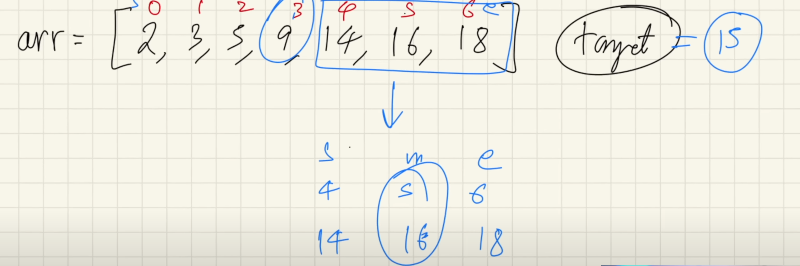 s 0 1 2 3 4 5 6 e
arr = [2, 3, 5, 9, 14, 16, 18] target = 15
s m e
4 5 6
14 16 18